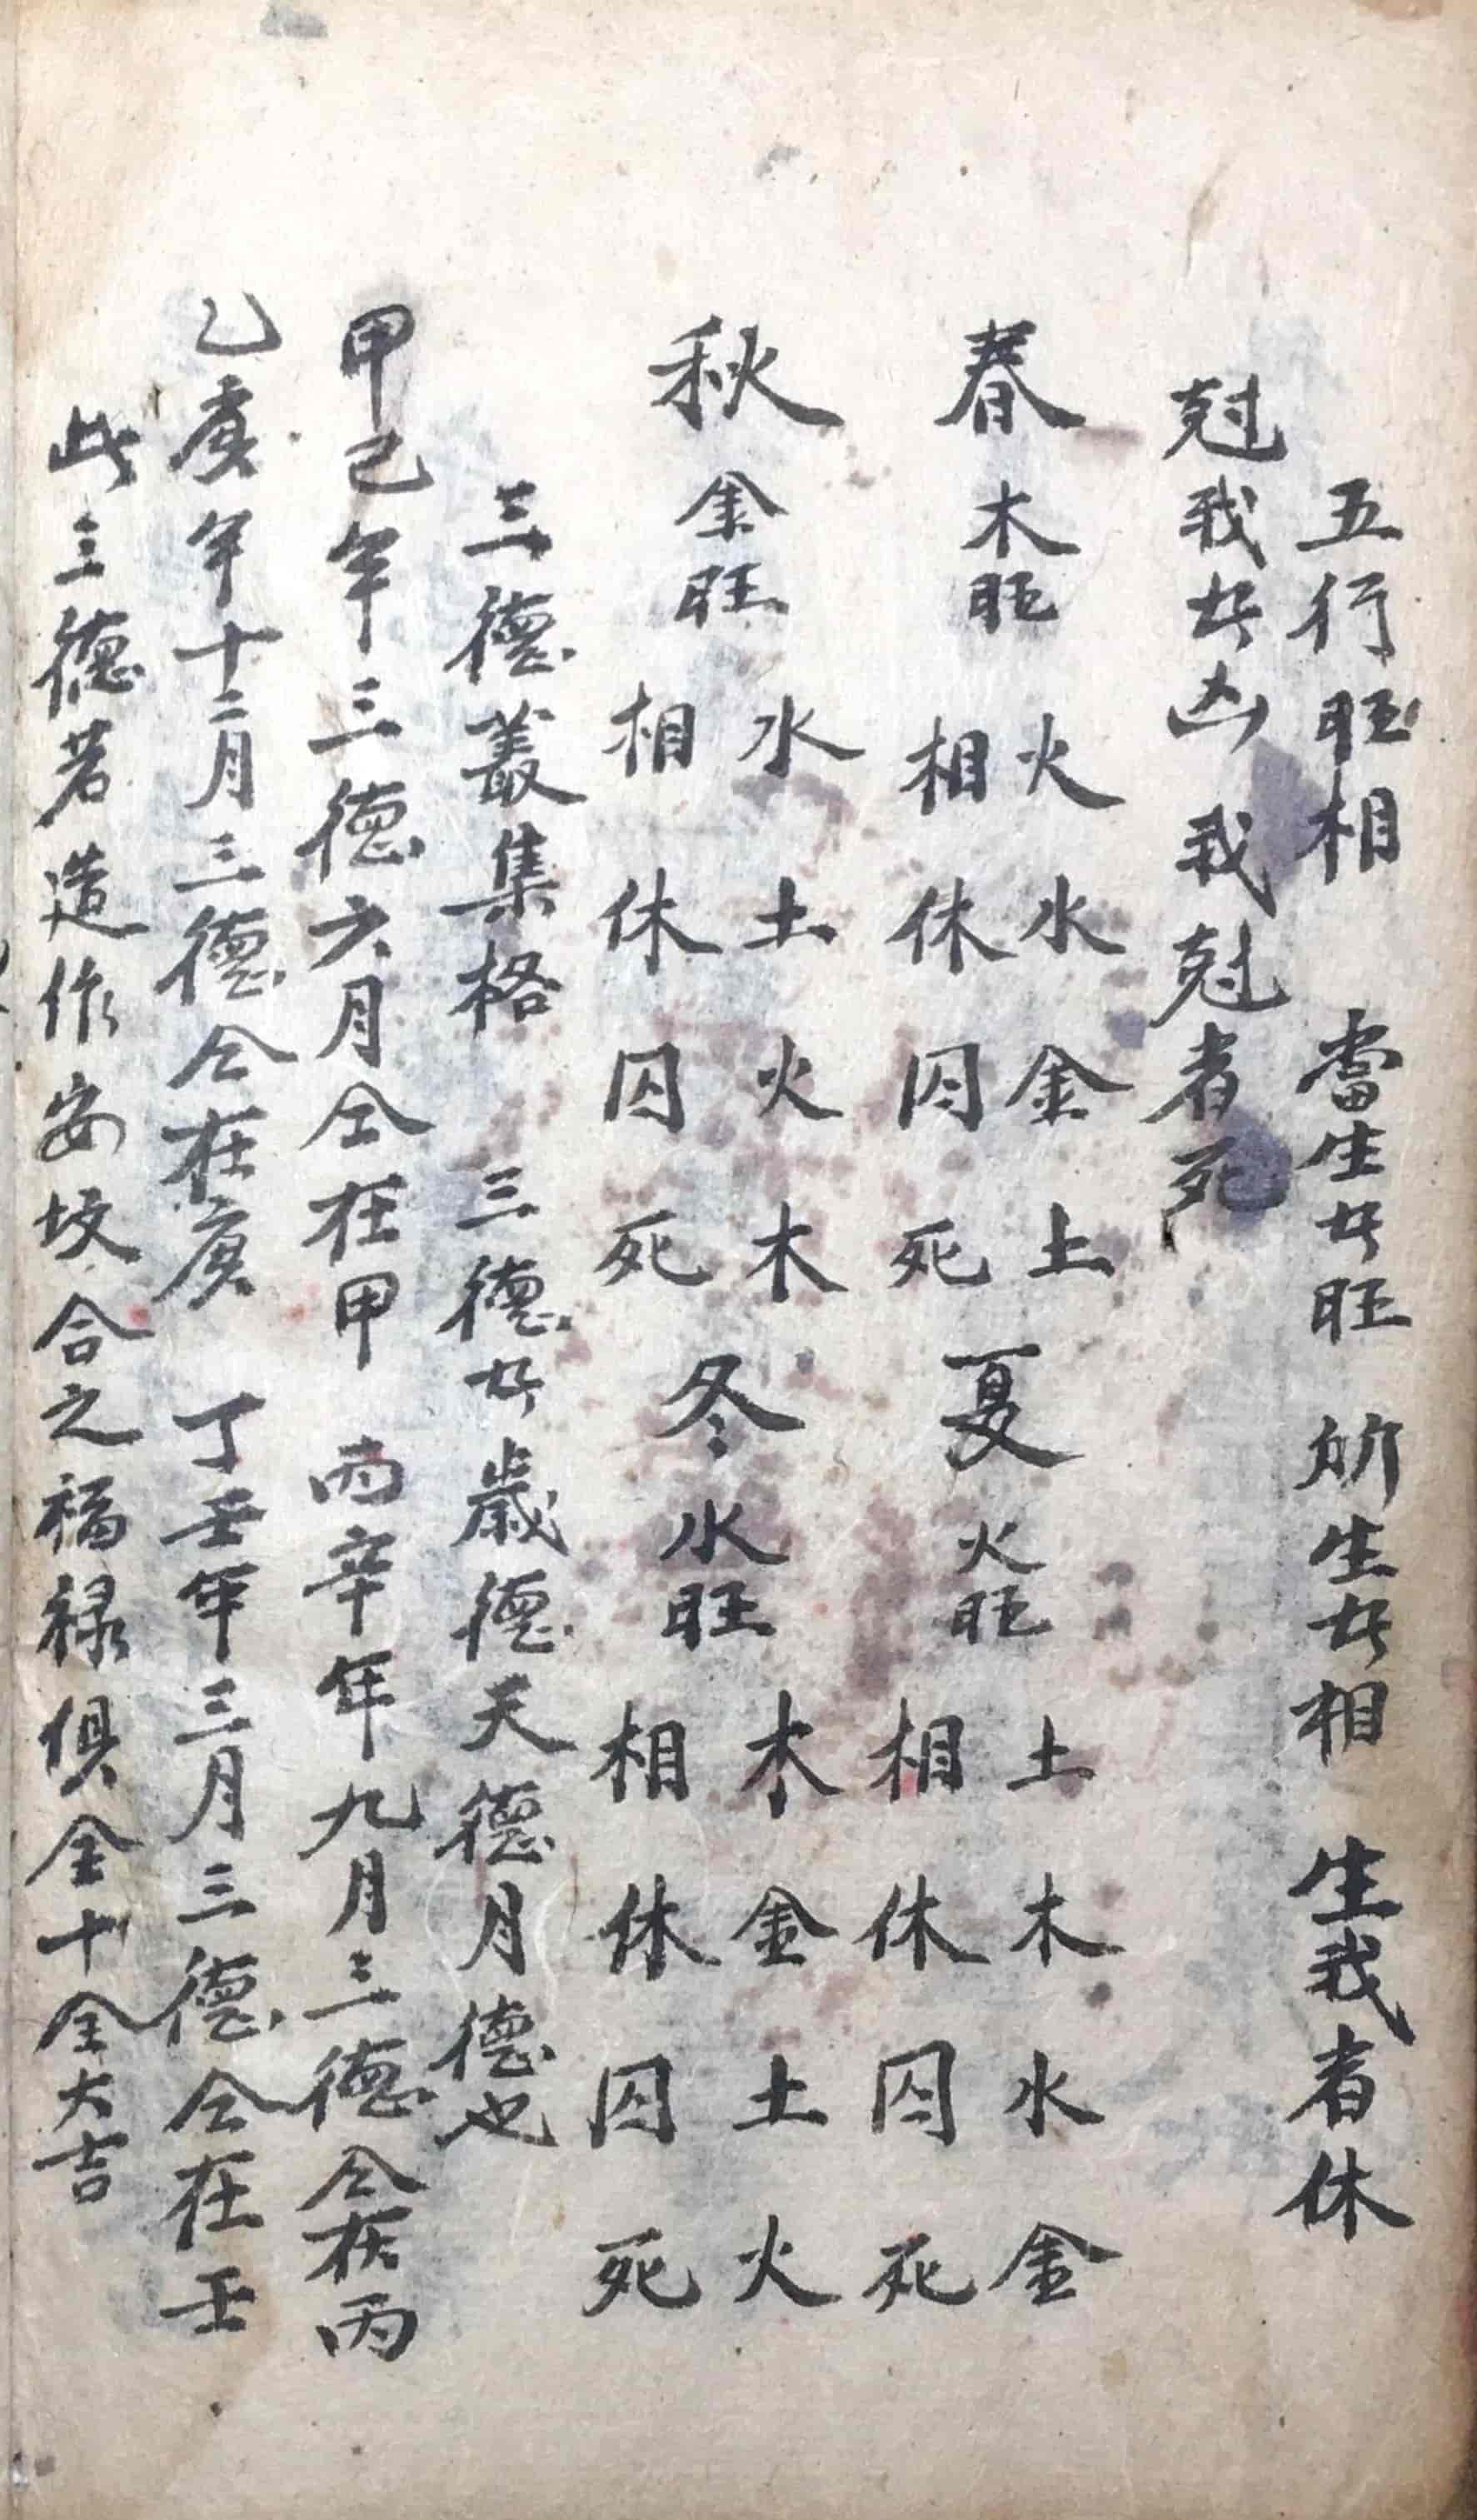 五行旺相 當生者旺 所生者相 生我者休
尅我者凶 我尅者死
春 木旺 火相 水休 金囚 土死 夏 火旺 土相 木休 水囚 金死
秋 金旺 水相 土休 火囚 木死 冬 水旺 木相 金休 土囚 火死
三德叢集格 三德者歲德天德月德也
甲己年三德六月仝在甲 丙辛年九月三德仝在丙
乙庚年十二月三德仝在庚 丁壬年三月三德仝在壬
此三德若造作安坟合之福禄俱全十全大吉